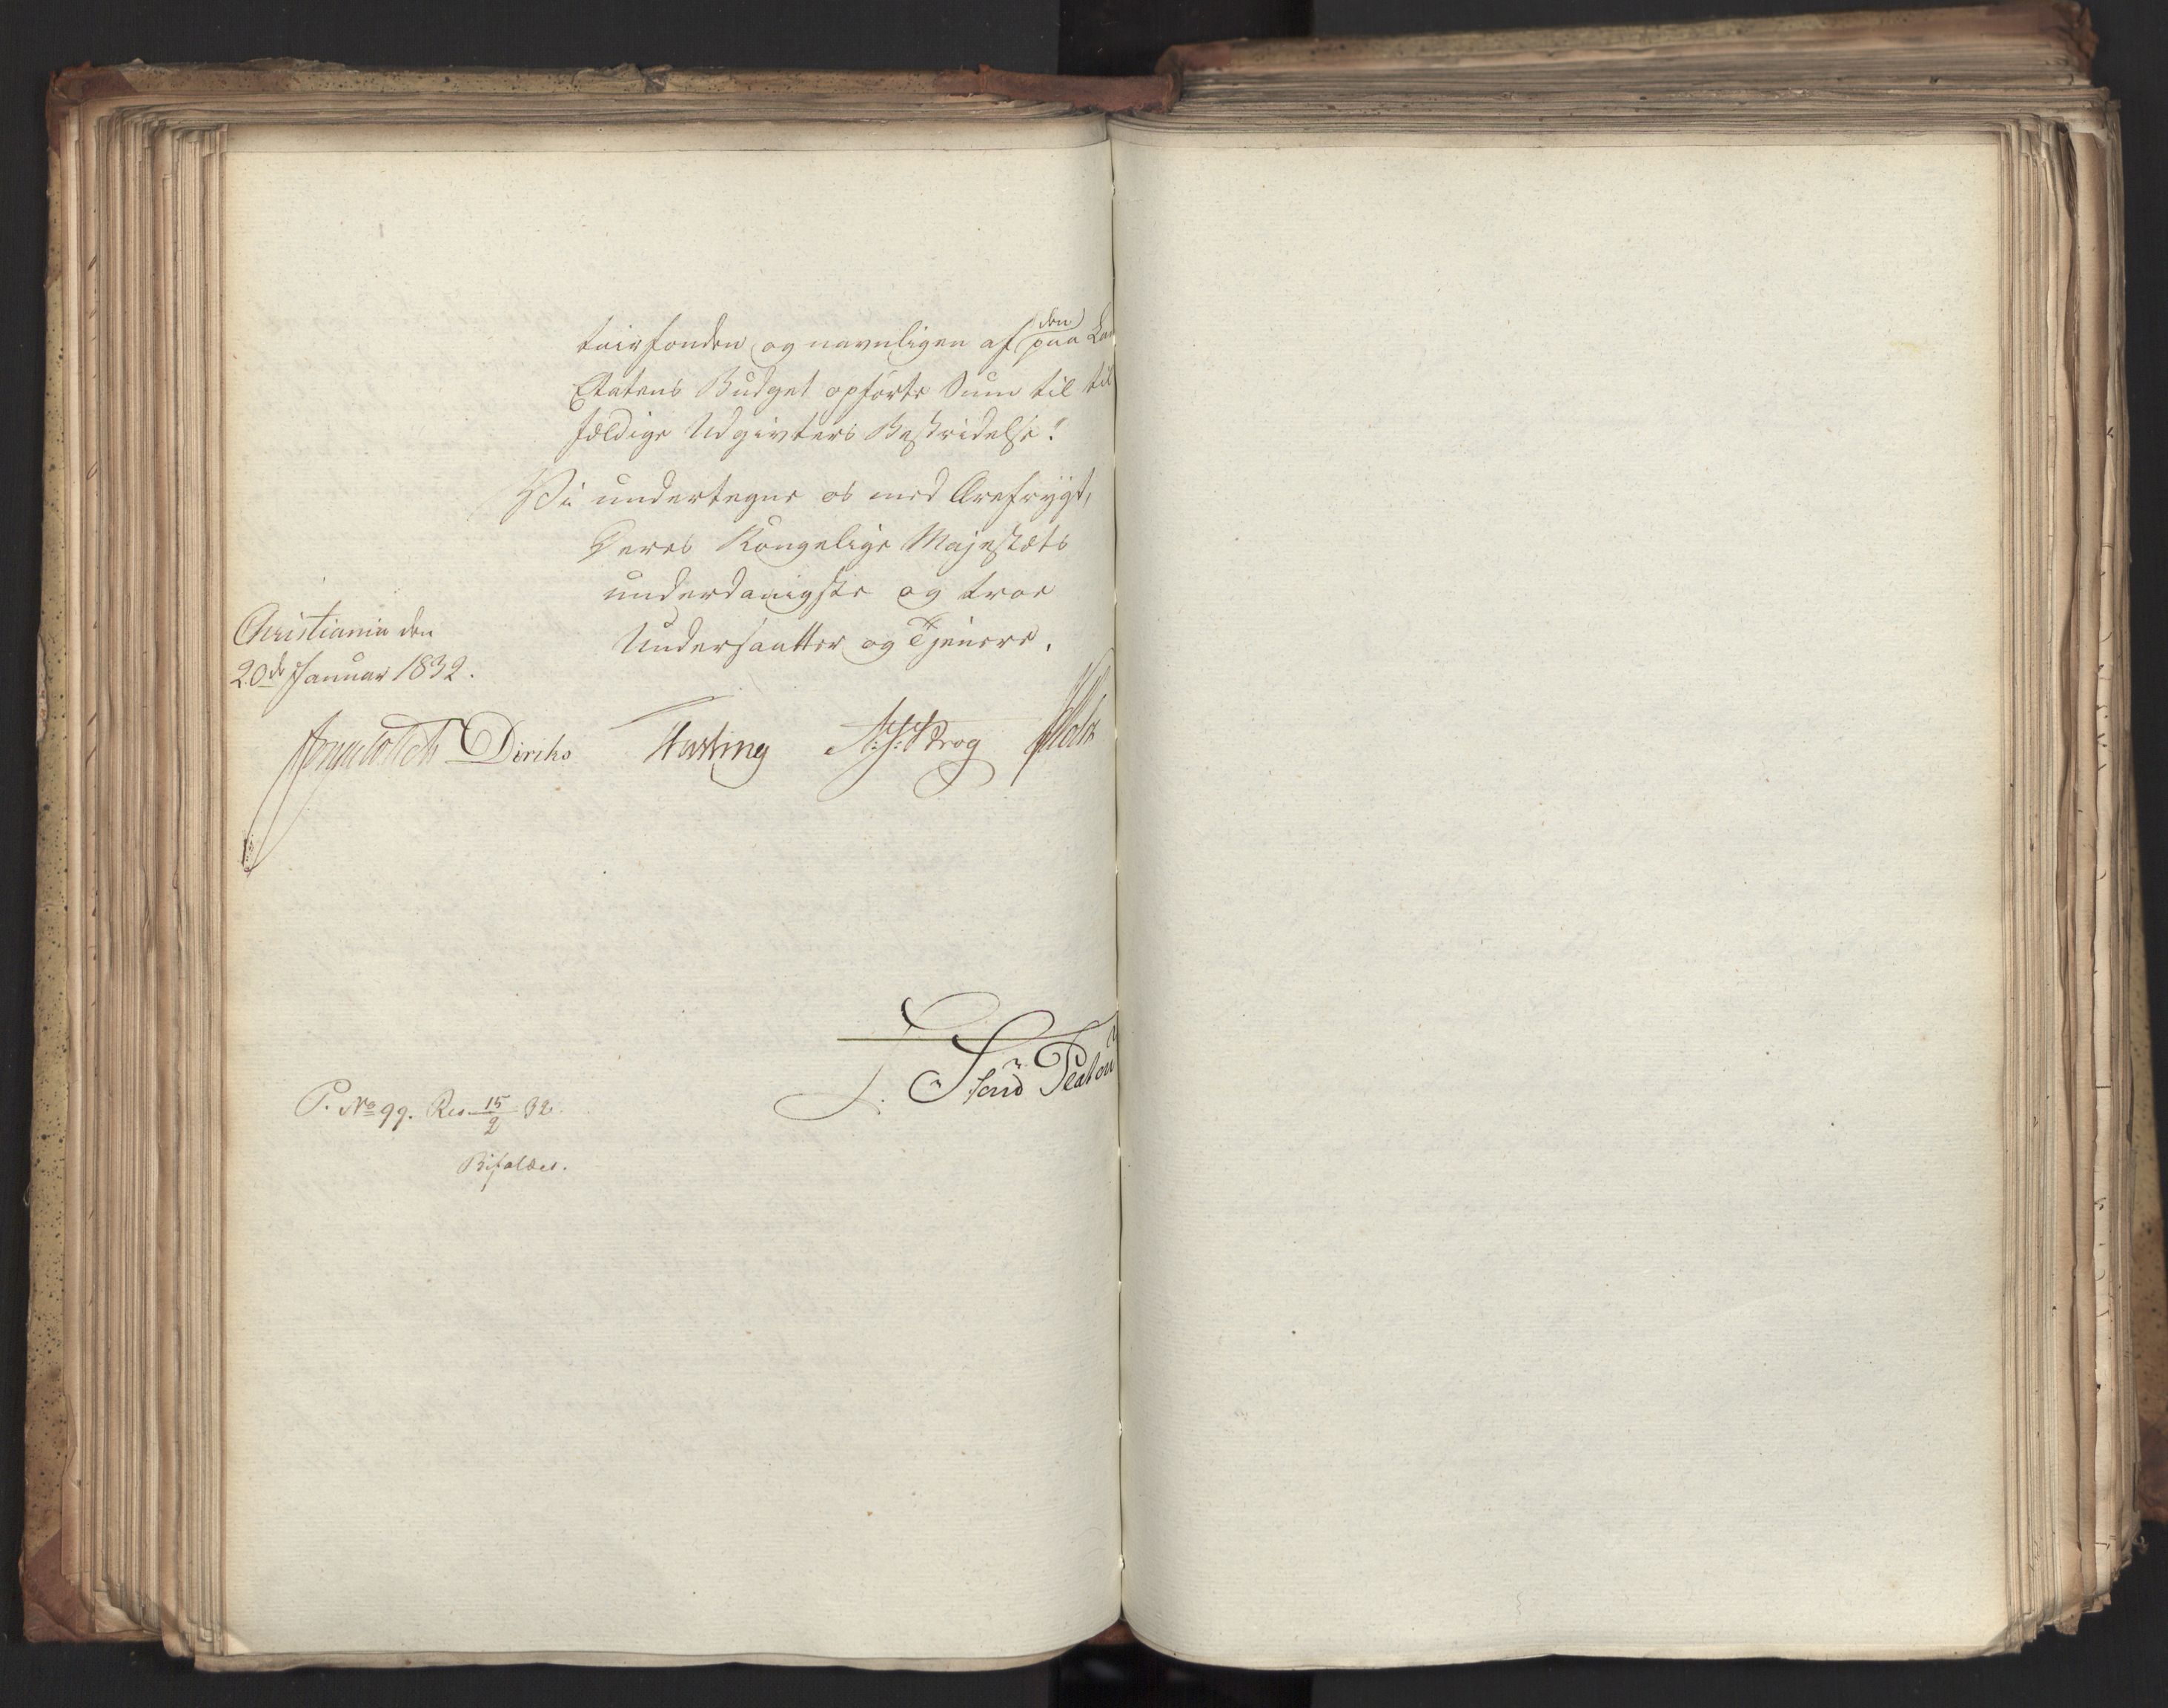 tairfonden og navnligen af den paa Lan
Etatens Budget opførte Sum til til
fældige Udgivters Bestridelse."
Vi undertegne os med Ærefrygt,
Deres Kongelige Majestæts
underdanigste og troe
Undersaatter og Tjenere.
Christiania den
20de Januar 1832.
Diriks Fasting Krog Holst
P. No 99. Res. 15/2 32.
Bifaldes.